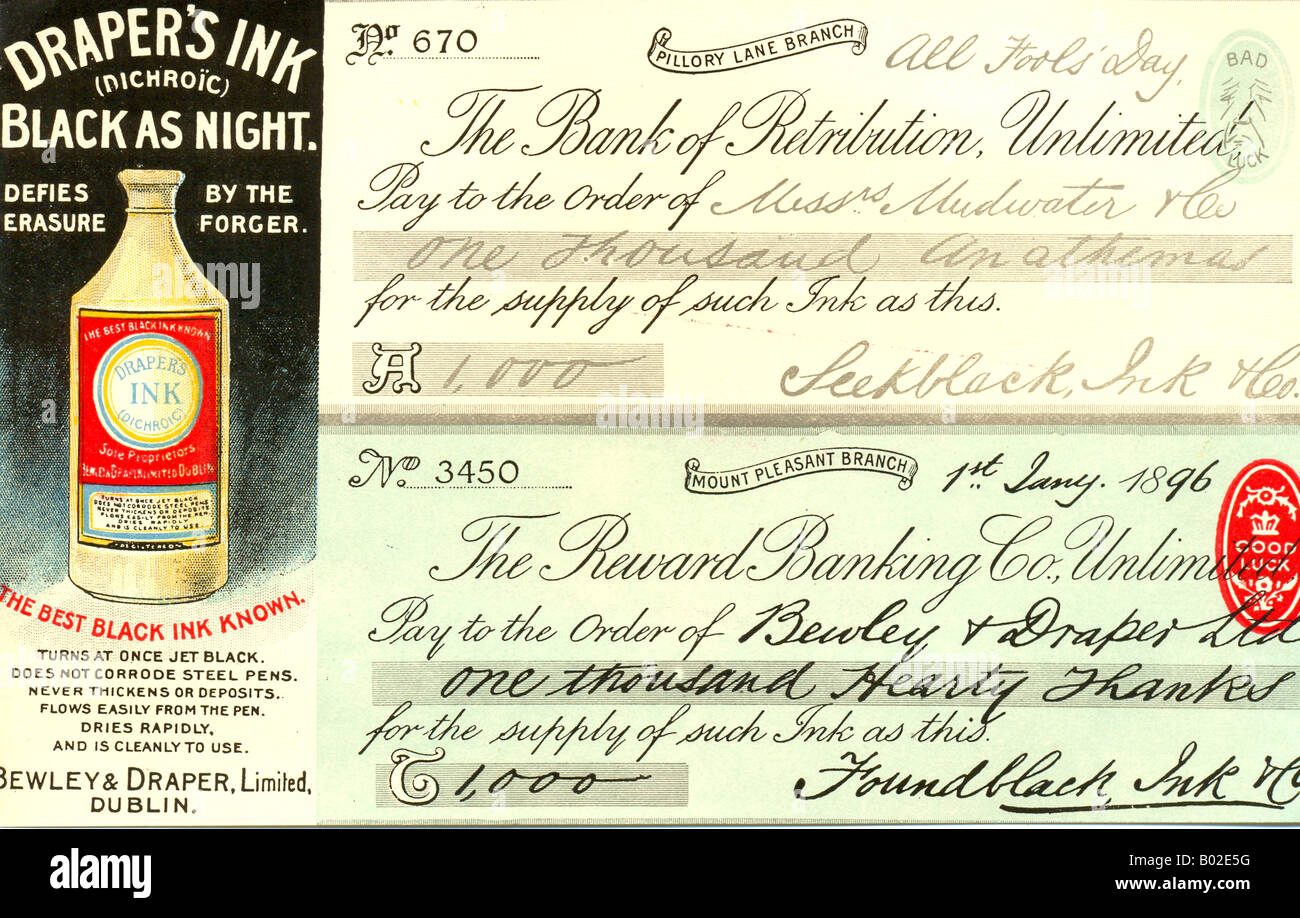 DRAPER'S INK
(DICHROÏC)
BLACK AS NIGHT.
DEFIES ERASURE
BY THE FORGER.
THE BEST BLACK INK KNOWN
DRAPER'S
INK
(DICHROIC)
Sole Proprietors
BEWLEY & DRAPER LIMITED DUBLIN
TURNS AT ONCE JET BLACK
DOES NOT CORRODE STEEL PENS
NEVER THICKENS OR DEPOSITS
FLOWS EASILY FROM THE PEN
DRIES RAPIDLY
AND IS CLEANLY TO USE
REGISTERED
THE BEST BLACK INK KNOWN.
TURNS AT ONCE JET BLACK.
DOES NOT CORRODE STEEL PENS.
NEVER THICKENS OR DEPOSITS.
FLOWS EASILY FROM THE PEN.
DRIES RAPIDLY,
AND IS CLEANLY TO USE.
BEWLEY & DRAPER, Limited,
DUBLIN.
No. 670
PILLORY LANE BRANCH
All Fools' Day,
BAD
LUCK
The Bank of Retribution, Unlimited,
Pay to the Order of Messrs Mudwater & Co
One Thousand Anathemas
for the supply of such Ink as this.
A 1,000
Seekblack, Ink & Co.
No. 3450
MOUNT PLEASANT BRANCH
1st Jany. 1896
GOOD
LUCK
The Reward Banking Co., Unlimited
Pay to the Order of Bewley & Draper Ltd
One thousand Hearty Thanks
for the supply of such Ink as this.
T 1,000
Foundblack, Ink & C
alamy
Image ID: B02E5G
www.alamy.com